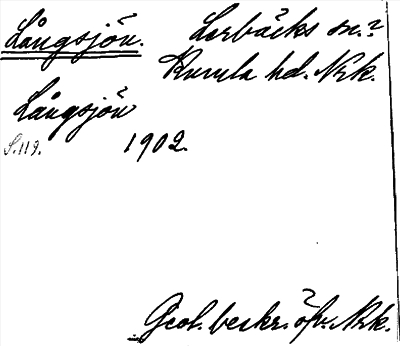 Långsjön. Lerbäcks sn.?
Kumla hd. Nrk.
Långsjön
S.119. 1902.
Geol. beskr. öfv. Nrk.